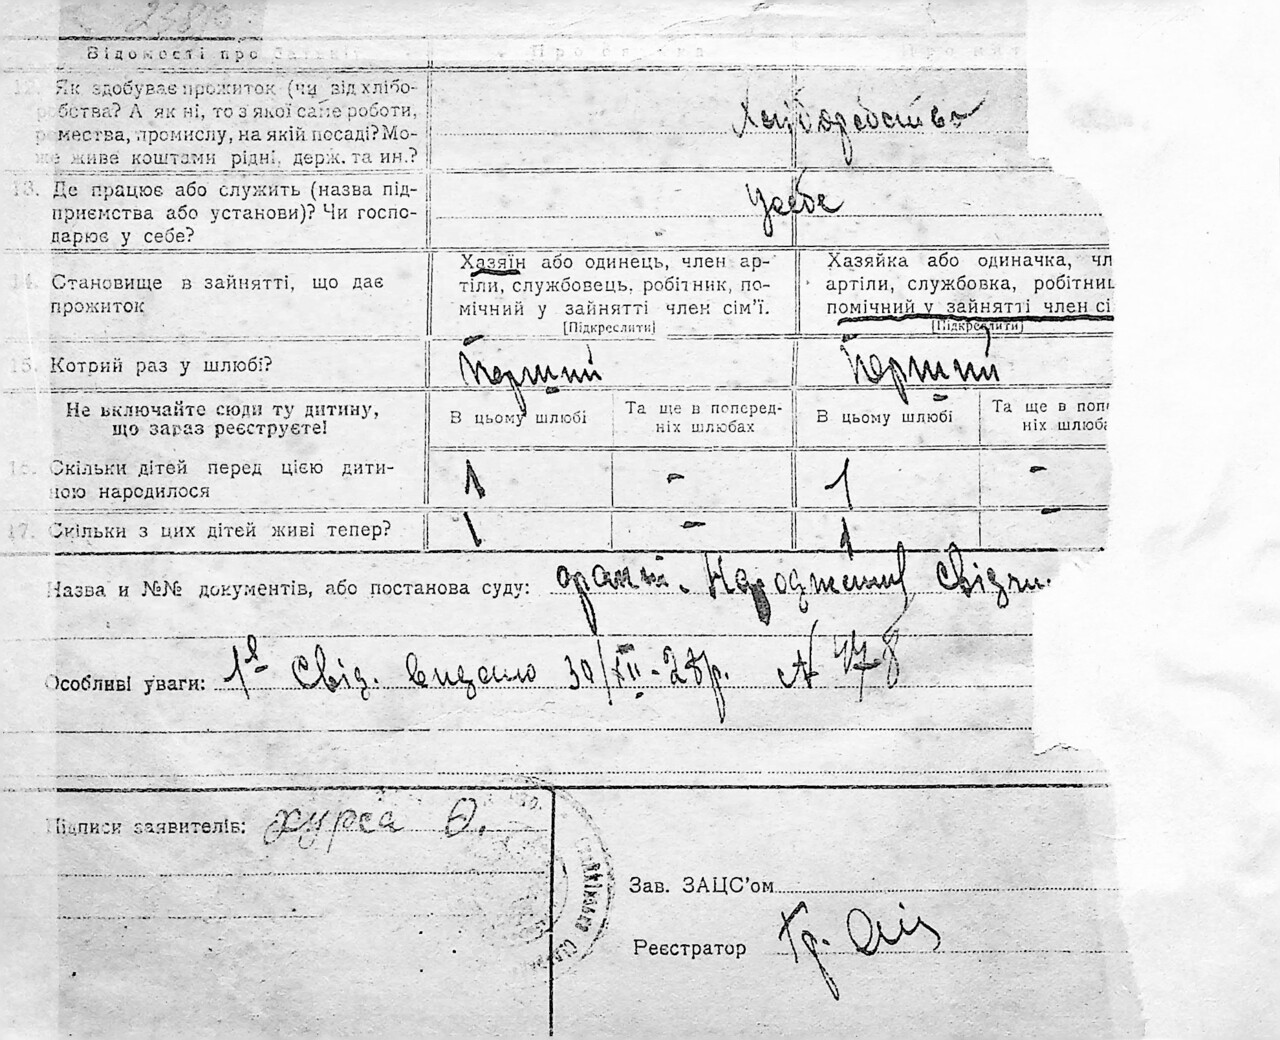 Відомості про батьків
Про батька
12. Як здобуває прожиток (чи від хлібо-
робства? А як ні, то з якої саме роботи,
ремества, промислу, на якій посаді? Мо-
же живе коштами рідні, держ. та ин.?
Хліборобство
13. Де працює або служить (назва під-
приємства або установи)? Чи госпо-
дарює у себе?
У себе
14. Становище в зайнятті, що дає
прожиток
Хазяїн або одинець, член ар-
тіли, службовець, робітник, по-
мічний у зайнятті член сім'ї.
[Підкреслити]
Хазяйка або одиначка, чл
артіли, службовка, робітниц
помічний у зайнятті член сі
[Підкреслити]
15. Котрий раз у шлюбі?
Перший
Перший
Не включайте сюди ту дитину,
що зараз реєструєте!
В цьому шлюбі
Та ще в поперед-
ніх шлюбах
В цьому шлюбі
Та ще в поп
ніх шлюба
16. Скільки дітей перед цією дити-
ною народилося
1 - 1 -
17. Скільки з цих дітей живі тепер?
1 - 1 -
Назва и №№ документів, або постанова суду:
Особливі уваги: Свід. видано 30/XII-28р. № 478
Підписи заявителів: Хурса
Зав. ЗАЦС'ом
Реєстратор